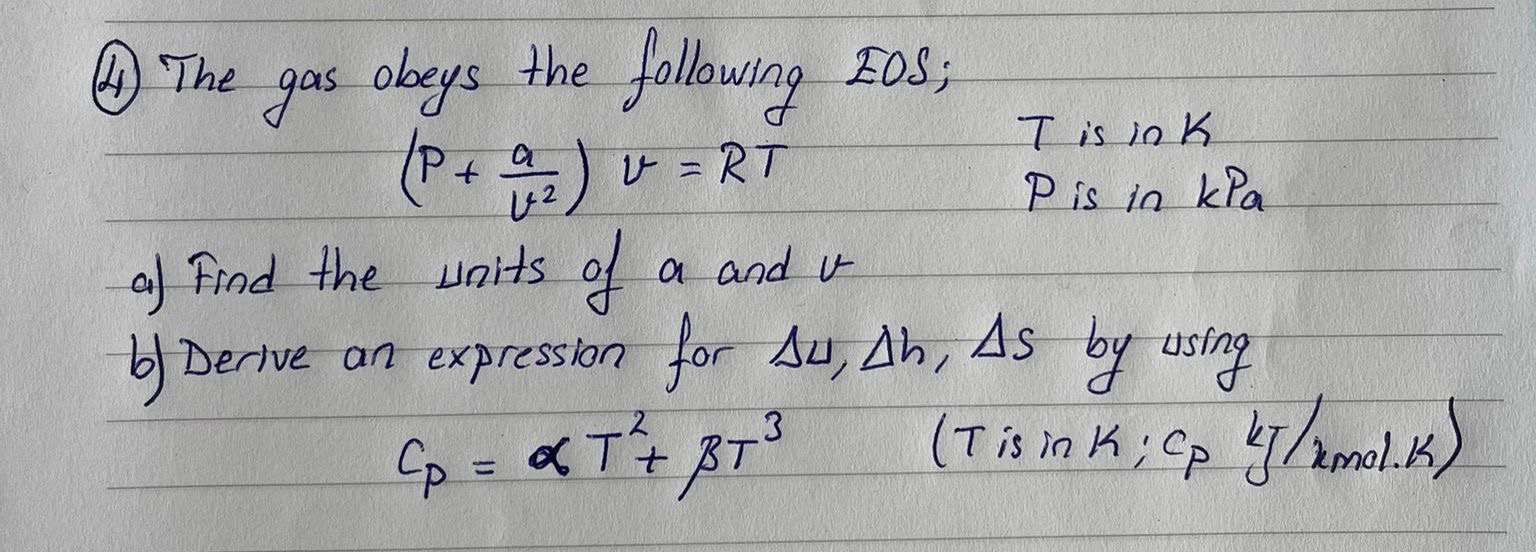 ④ The gas obeys the following EOS;
(P + a/v²) v = RT
T is in K
P is in kPa
a) Find the units of a and v
b) Derive an expression for Δu, Δh, Δs by using
Cp = αT² + βT³ (T is in K; Cp kJ/kmol.K)